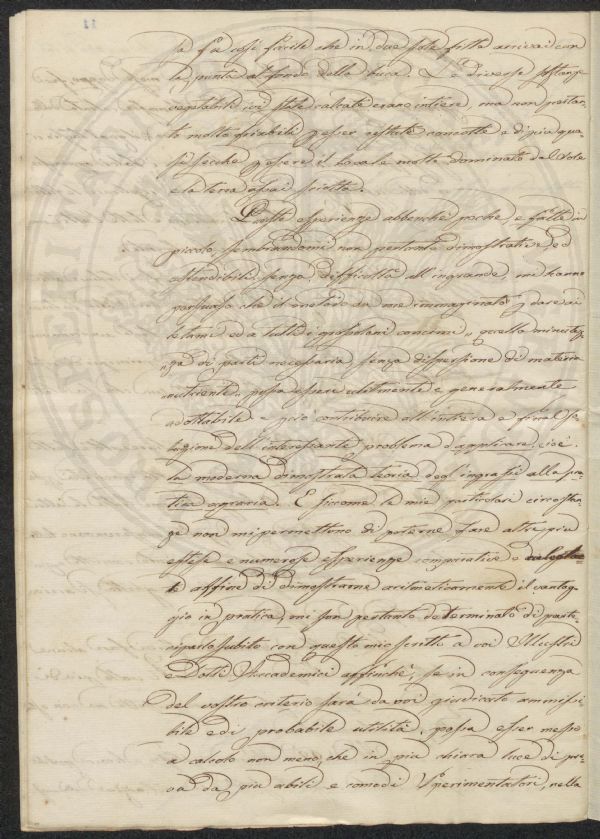 la fu assi facile che in due sole fitte arrivai con
la punta al fondo della buca. Le diverse sostanze
vegetabili ivi state calcate erano intiere, ma non pertan-
to molto friabili p esser restate concotte e di più qua-
si secche p essere il locale molto dominato dal Sole
e la terra assai sciolta.
Queste esperienze abbenche poche e fatte in
piccolo sembrandomi non pertanto dimostrative ed
estendibili senza difficoltà all' ingrande mi hanno
persuaso che il metodo da me immaginato p dare ai
letami ed a tutti i grossolani concimi „ quella minutez-
„za di parti necessaria senza dispersione di materia
nutriente„ possa essere utilmente e generalmente
adottabile e p ciò contribuire all' intiera e final so-
luzione dell' interessante problema d'applicare, cioè
la moderna dimostrata teoria degl' ingrassi alla pra-
tica agraria. E siccome le mie particolari circostan-
ze non mi permettono di poterne fare altre più
estese e numerose esperienze comparative e
affine di dimostrarne aritmeticamente il vantag-
gio in pratica, mi son pertanto determinato di parte-
ciparlo subito con questo mio scritto a voi Illustri
e Dotti Accademici affinchè, se in conseguenza
del vostro criterio sarà da voi giudicato ammissi-
bile e di probabile utilità, possa esser messo
a calcolo non meno, che in più chiara luce di pro-
va da più abili e comodi Sperimentatori, nella